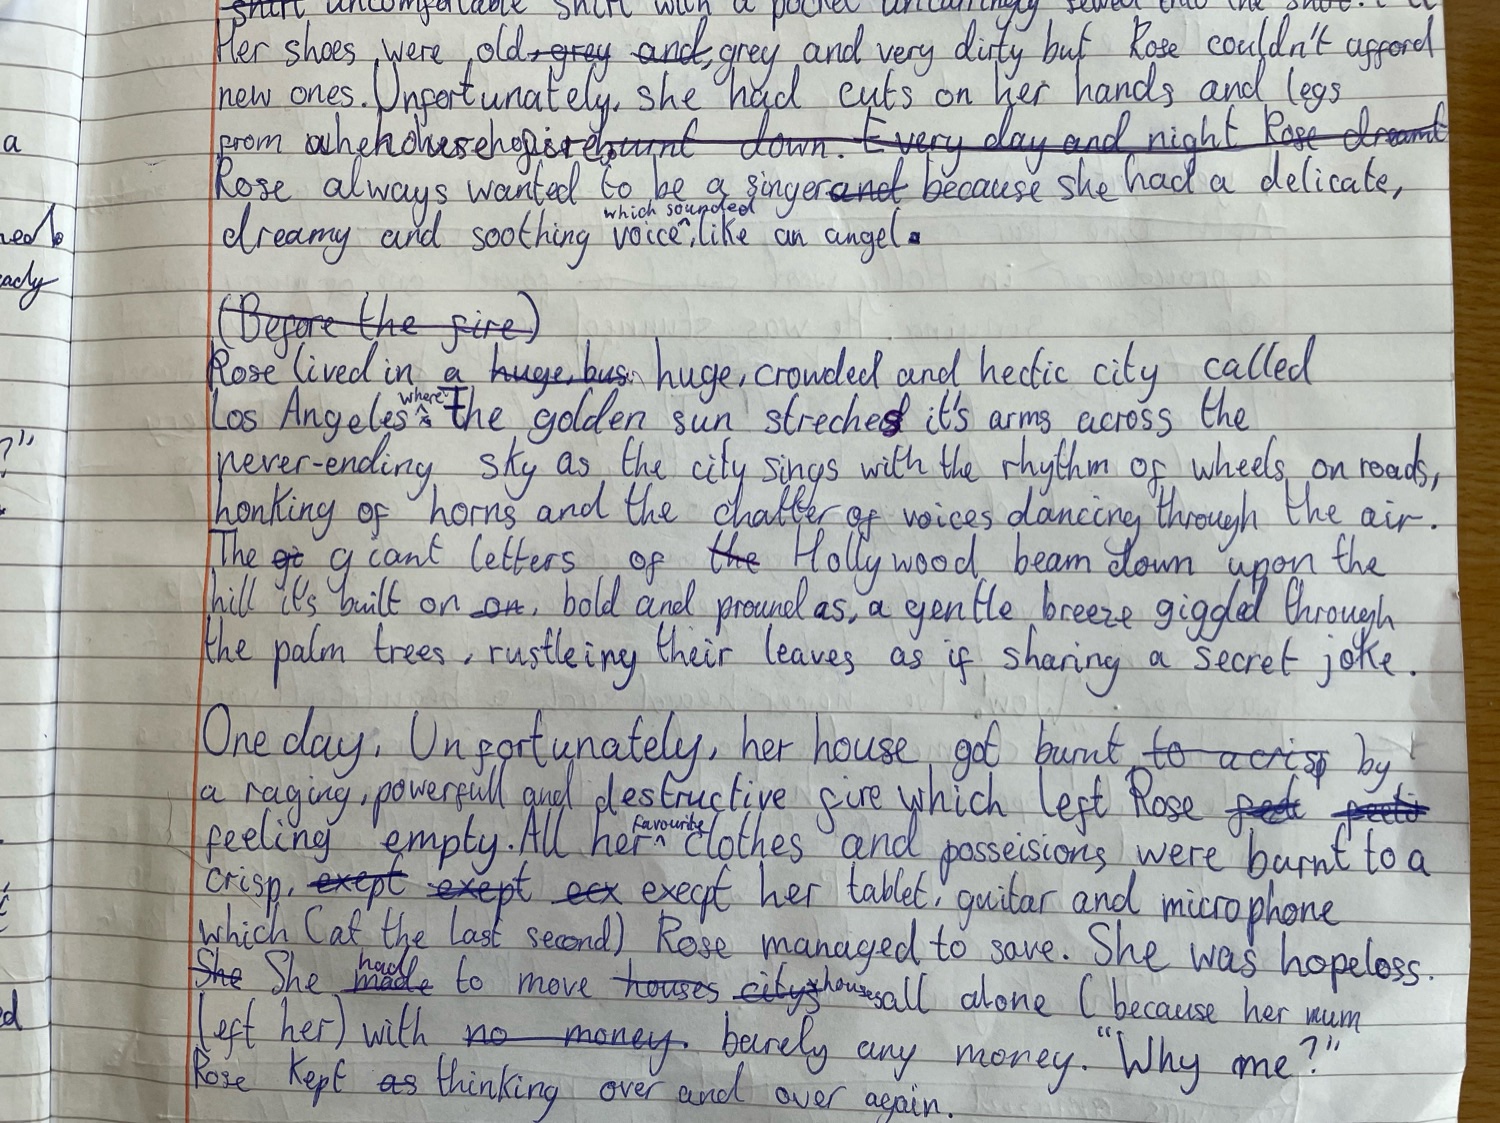 uncomfortable shirt with a pocket sewed into the
Her shoes were old, grey and, grey and very dirty but Rose couldn't afford
new ones. Unfortunately, she had cuts on her hands and legs
from burnt down. Every day and night Rose dreamt
Rose always wanted to be a singer and because she had a delicate,
which sounded
dreamy and soothing voice, like an angel.
(Before the fire)
Rose lived in a huge, bus huge, crowded and hectic city called
where
Los Angeles The golden sun streched it's arms across the
never-ending sky as the city sings with the rhythm of wheels on roads,
honking of horns and the chatter of voices dancing through the air.
The gi giant letters of the Hollywood beam down upon the
hill it's built on on, bold and pround as, a gentle breeze giggled through
the palm trees, rustleing their leaves as if sharing a secret joke.
One day, Unfortunately, her house got burnt to a crisp by
a raging, powerfull and destructive fire which left Rose
favourite
feeling empty. All her clothes and posseisions were burnt to a
crisp, exept exept eex execpt her tablet, guitar and microphone
which (at the last second) Rose managed to save. She was hopeloss.
had
She She made to move houses citys houses all alone (because her mum
left her) with no money. barely any money. "Why me?"
Rose kept as thinking over and over again.
a
?"